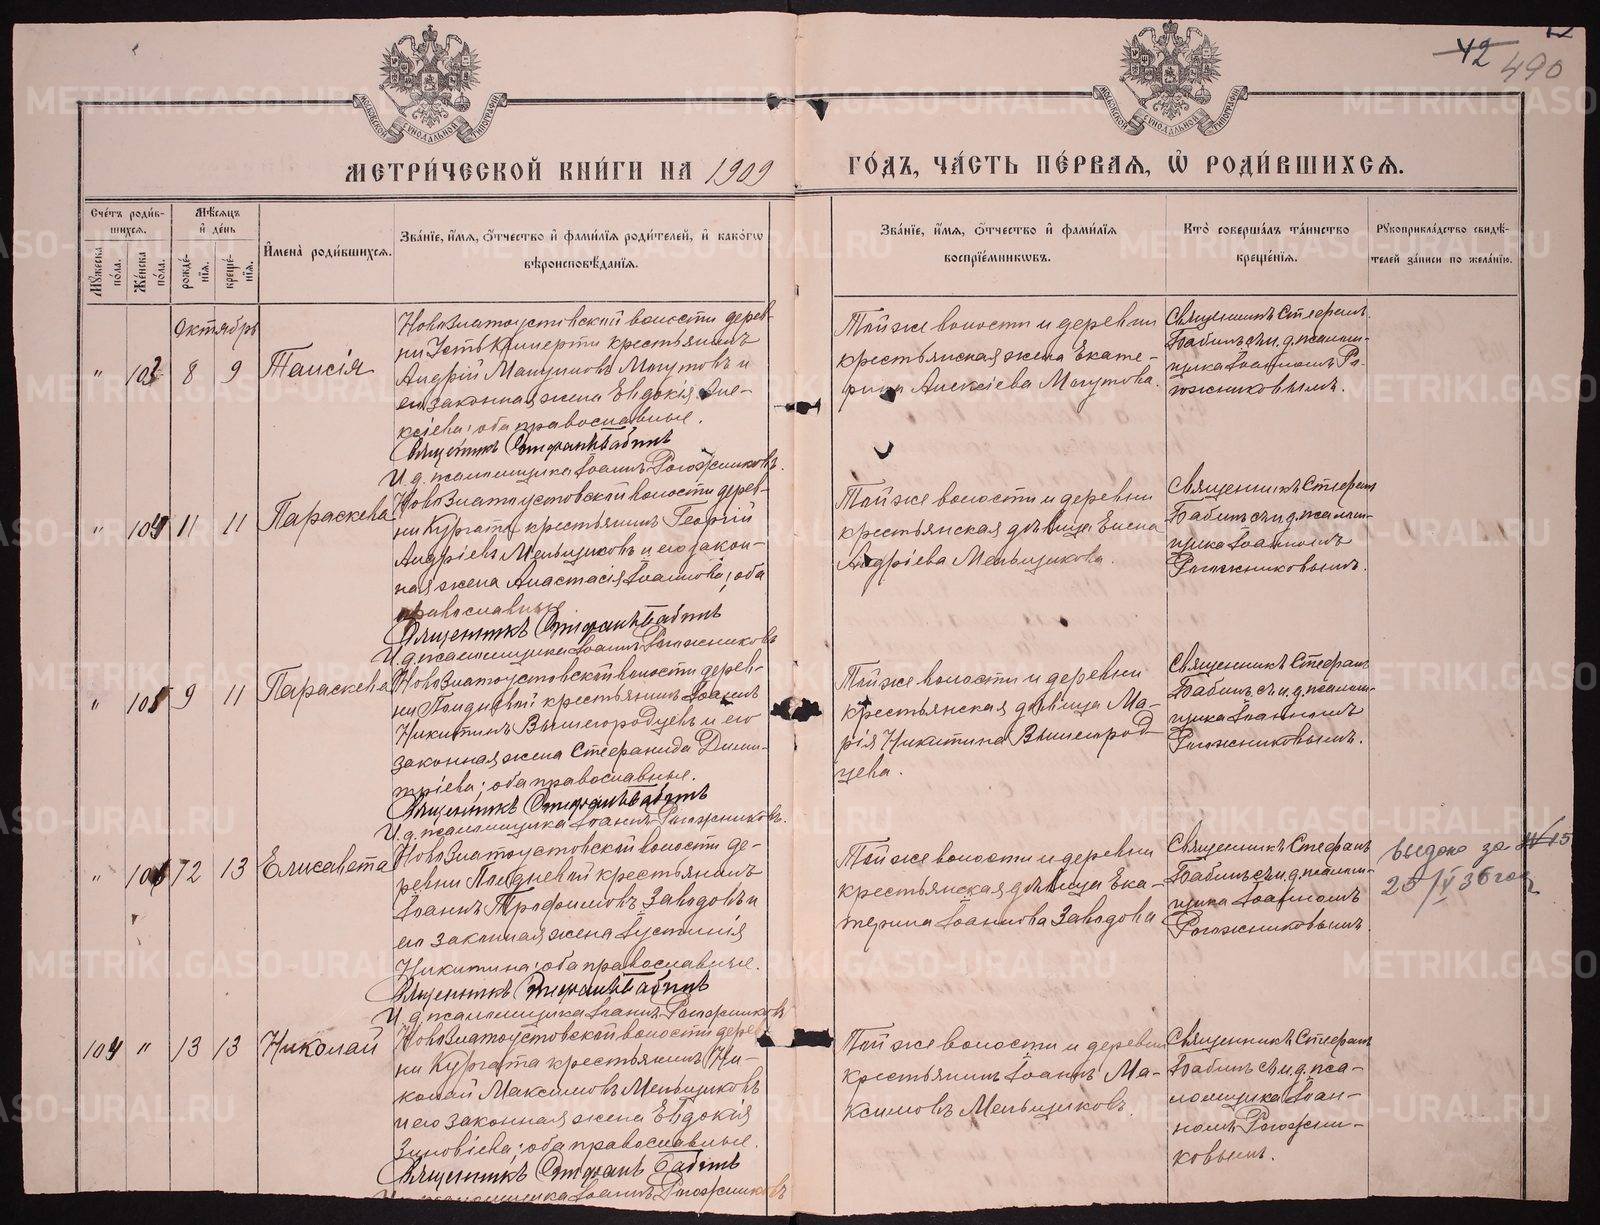 42
490
МОСКОВСКОЙ СѴНОДАЛЬНОЙ ТИПОГРАФІИ
МОСКОВСКОЙ СѴНОДАЛЬНОЙ ТИПОГРАФІИ
МЕТРИ́ЧЕСКОЙ КНИ́ГИ НА 1909
ГО́ДЪ, ЧА́СТЬ ПЕ́РВАѦ, Ѡ҆ РОДИ́ВШИХСѦ.
Сче́тъ роди́в-
шихсѧ.
Мꙋ́жеска по́ла.
Же́нска по́ла.
Мѣ́сѧцъ
и҆ де́нь
рожде́-
нїѧ.
креще́-
нїѧ.
И҆мена̀ роди́вшихсѧ.
Зва́нїе, и҆́мѧ, ѻ҆́тчество и҆ фамилїѧ роди́телей, и҆ како́гѡ
вѣроисповѣ́данїѧ.
Зва́нїе, и҆́мѧ, ѻ҆́тчество и҆ фами́лїѧ
воспрїе́мникѡвъ.
Кто̀ соверша́лъ та́инство
креще́нїѧ.
Рꙋкоприкла́дство свидѣ́-
телей за́писи по жела́нїю.
Октябрь
" 103 8 9 Таисія
НовоЗлатоустовской волости дерев-
ни Усть Кишерти крестьянинъ
Андрій Магутовъ и
его законная жена Евдокія Але-
ксіева; оба православные.
Священникъ Стефанъ Бабинъ
И.д. псаломщика Іоаннъ Рогожниковъ.
Той же волости и деревни
крестьянская жена Екате-
рина Алексіева Магутова.
Священникъ Стефанъ
Бабинъ съ и.д. псалом-
щика Іоанномъ Ро-
гожниковымъ.
" 104 11 11 Параскева
НовоЗлатоустовской волости дерев-
ни Кургата крестьянинъ Георгій
Андріевъ Меньщиковъ и его закон-
ная жена Анастасія Іоаннова; оба
православные.
Священникъ Стефанъ Бабинъ
И.д. псаломщика Іоаннъ Рогожниковъ
Той же волости и деревни
крестьянская дѣвица Елена
Андріева Меньщикова.
Священникъ Стефанъ
Бабинъ съ и.д. псалом-
щика Іоанномъ
Рогожниковымъ.
" 105 9 11 Параскева
НовоЗлатоустовской волости дерев-
ни Полдневой крестьянинъ Іоаннъ
Никитинъ Вышегородцевъ и его
законная жена Стефанида Дими-
тріева; оба православные.
Священникъ Стефанъ Бабинъ
И.д. псаломщика Іоаннъ Рогожниковъ.
Той же волости и деревни
крестьянская дѣвица Ма-
рія Никитина Вышегород
цева.
Священникъ Стефанъ
Бабинъ съ и.д. псалом-
щика Іоанномъ
Рогожниковымъ.
" 106 12 13 Елисавета
НовоЗлатоустовской волости де-
ревни Полдневой крестьянинъ
Іоаннъ Трофимовъ Заводовъ и
его законная жена Іустинія
Никитина; оба православные.
Священникъ Стефанъ Бабинъ
И.д. псаломщика Іоаннъ Рогожниковъ
Той же волости и деревни
крестьянская дѣвица Ека-
терина Іоаннова Заводова
Священникъ Стефанъ
Бабинъ съ и.д. псалом-
щика Іоанномъ
Рогожниковымъ.
выдано за 15
25/V 36 год
104 " 13 13 Николай
НовоЗлатоустовской волости дерев
ни Кургата крестьянинъ Ни-
колай Максимовъ Меньщиковъ
и его законная жена Евдокія
Зиновіева; оба православные.
Священникъ Стефанъ Бабинъ
И.д. псаломщика Іоаннъ Рогожниковъ
Той же волости и деревни
крестьянинъ Іоаннъ Ма-
ксимовъ Меньщиковъ.
Священникъ Стефанъ
Бабинъ съ и.д. пса-
ломщика Іоан-
номъ Рогожни-
ковымъ.
METRIKI.GASO-URAL.RU